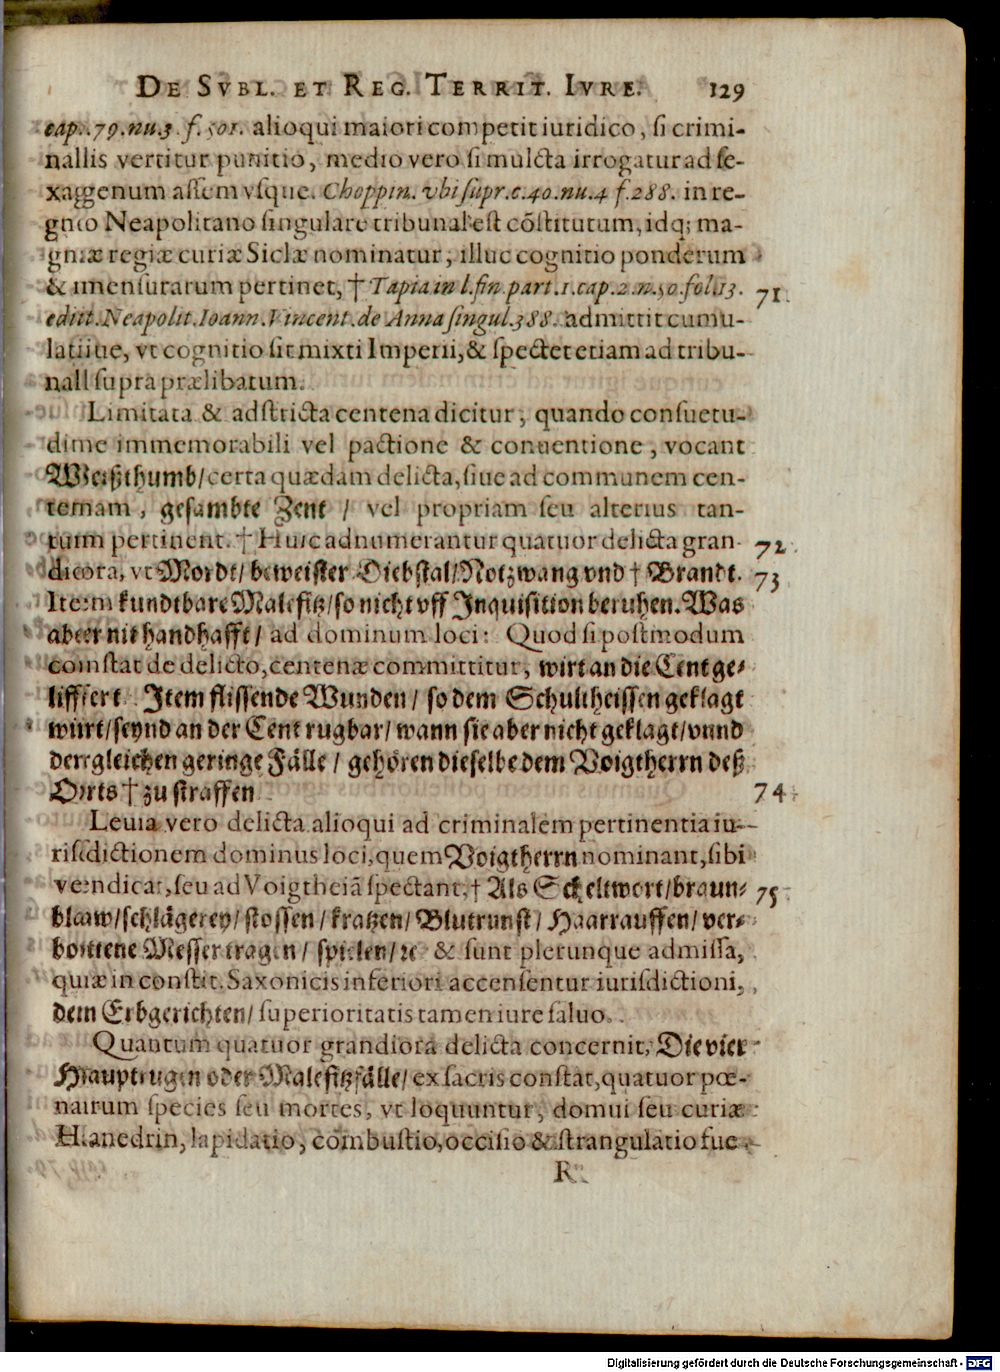 DE SVBL. ET REG. TERRIT. IVRE. 129
cap. 79. nu. 3. f. 501. alioqui maiori competit iuridico, si crimi-
nallis vertitur punitio, medio vero si mulcta irrogatur ad se-
xaggenum assem vsque. Choppin. vbi supr. c. 40. nu. 4 f. 288. in re-
gno Neapolitano singulare tribunal est cõstitutum, idq; ma-
gnæ regiæ curiæ Siclæ nominatur, illuc cognitio ponderum
& mensurarum pertinet, † Tapia in l. fin. part. 1. cap. 2. n. 50. fol. 13. 71
editt. Neapolit. Ioann. Vincent. de Anna singul. 388. admittit cumu-
latiue, vt cognitio sit mixti Imperii, & spectet etiam ad tribu-
nall supra prælibatum.
Limitata & adstricta centena dicitur, quando consuetu-
dine immemorabili vel pactione & conuentione, vocant
Weißthumb/ certa quædam delicta, siue ad communem cen-
tenam, gesambte Zent / vel propriam seu alterius tan-
tum pertinent. † Huic adnumerantur quatuor delicta gran- 72
diora, vt Mordt/ beweister Diebstal/ Notzwang vnd † Brandt. 73
Item kundtbare Malefitz/ so nicht vff Inquisition beruhen. Was
aber nit handhafft/ ad dominum loci: Quod si postmodum
constat de delicto, centenæ committitur, wirt an die Cent ge-
liffiert. Item flissende Wunden/ so dem Schultheissen geklagt
wirt/ seynd an der Cent rugbar/ wann sie aber nicht geklagt/ vnnd
dergleichen geringe Fälle / gehören dieselbe dem Voigtherrn deß
Orts † zu straffen 74
Leuia vero delicta alioqui ad criminalem pertinentia iu-
risdictionem dominus loci, quem Voigtherrn nominant, sibi
vendicat, seu ad Voigtheiã spectant, † Als Scheltwort/ braun- 75
blaw/ schlägerey/ stossen/ kratzen/ Blutrunst/ Haarrauffen/ ver-
bottene Messer tragen/ spielen/ ꝛc & sunt plerunque admissa,
quæ in constit. Saxonicis inferiori accensentur iurisdictioni,
dem Erbgerichten/ superioritatis tamen iure saluo.
Quantum quatuor grandiora delicta concernit, Die vier
Hauptrugen oder Malefitzfälle/ ex sacris constat, quatuor pœ-
narum species seu mortes, vt loquuntur, domui seu curiæ
Hanedrin, lapidatio, combustio, occisio & strangulatio fue-
R
Digitalisierung gefördert durch die Deutsche Forschungsgemeinschaft - DFG